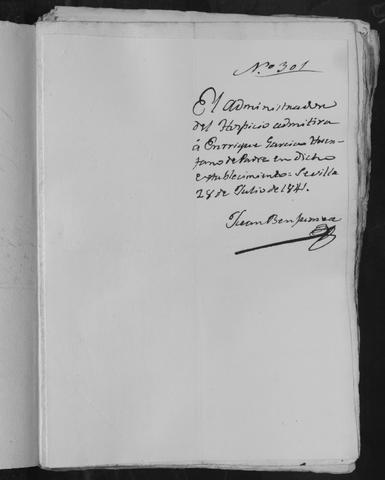 N.º 301
El Administrador
del Hospicio admitira
á Enrrique Garcia Huer-
fano de Padre en dicho
establecimiento: Sevilla
28 de Julio de 1841.
Juan Ben